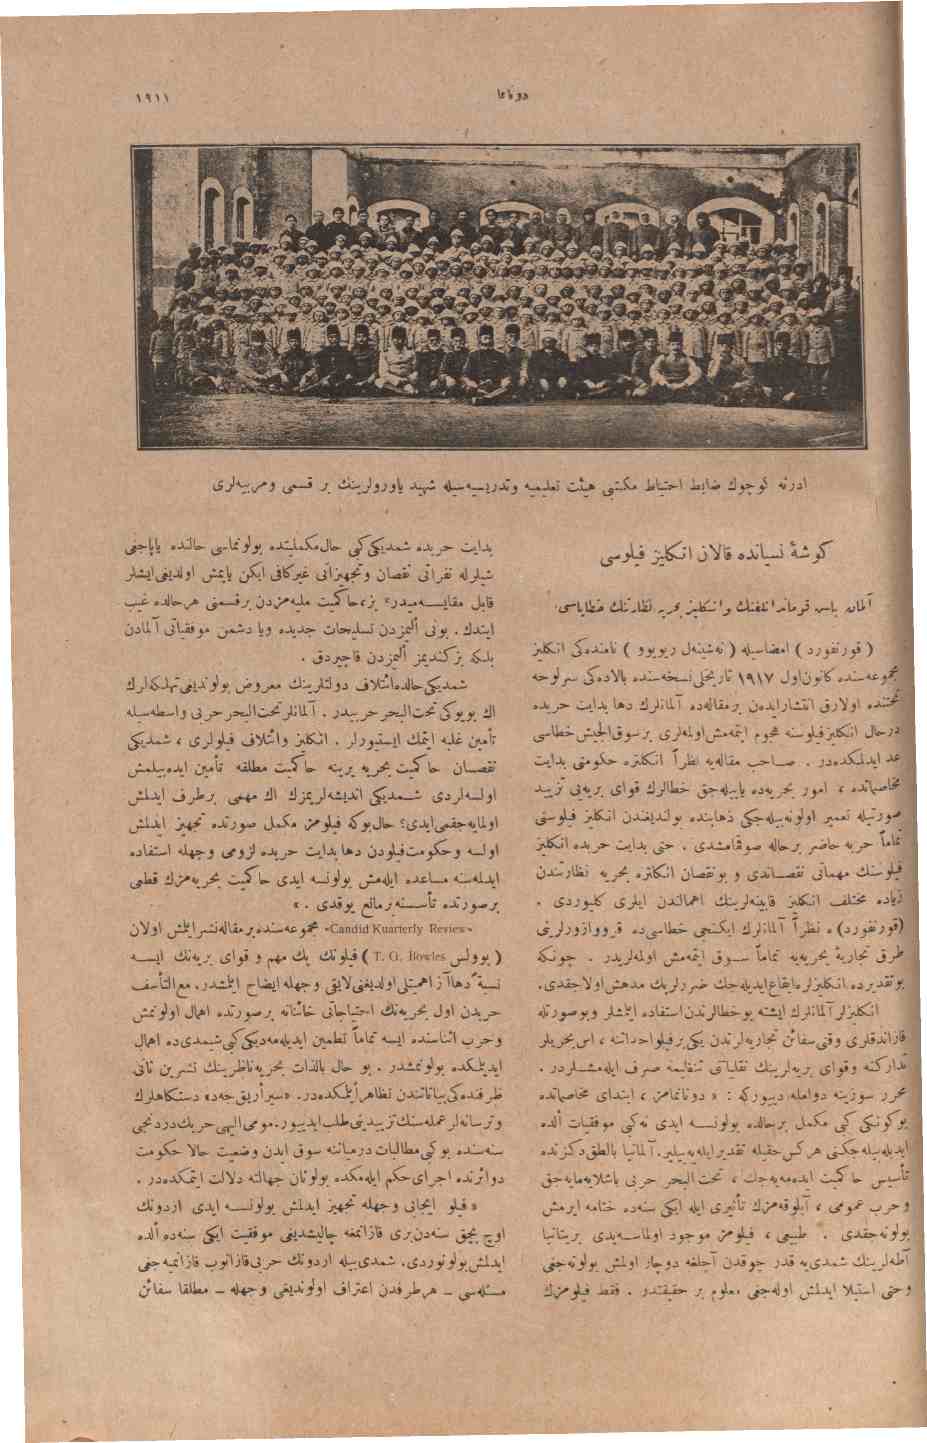 دونانما
١٩١١
ادرنه كوچوك ضابط احتياط مكتبى هيئت تعليميه وتدريسيه‌سيله شهيد ياورولرينك بر قسمى ومربيه‌لرى
كوشهٔ نسيانده قالان انكليز فيلوسى
آلمان باش قومانداننلغنك وانكليز بحريه نظارتنك خطاياسى
( قورنفورد ) امضاسيله ( نه‌شينه‌ل ريويوو ) نامنده‌كى انكليز
مجموعه‌سنده كانون اول ١٩١٧ تاريخلى نسخه‌سنده بالاده‌كى سرلوحه
تحتنده اولارق انتشار ايدن برمقاله‌ده آلمانلرك دها بدايت حربده
درحال انكليز فيلوسنه هجوم ايتمه‌مش اولمه‌لرى برسوق الجيش خطاسى
عد ايدلمكده‌در . صاحب مقاله‌يه نظراً انكلتره حكومتى بدايت
مخاصماتده ، امور بحريه‌ده ياپيله‌جق خطالرك قواى بريه‌يى تزييد
صورتيله تعمير اولونه‌بيله‌جكى ذهابنده بولنديغندن انكليز فيلوسنى
تماماً حربه حاضر برحاله صوقمامشدى . حتى بدايت حربده انكليز
فيلوسنك مهماتى نقصاندى و بونقصان انكلتره بحريه نظارتندن
زياده مختلف انكليز قابينه‌لرينك اهمالندن ايلرى كليوردى .
(قورنفورد) ه نظراً آلمانلرك ايكنجى خطاسى‌ده قرووازورلرينى
طرق تجاريهٔ بحريه‌يه تماماً سوق ايتمه‌مش اولمه‌لريدر . چونكه
بو تقديرده انكليزلره ايقاع ايديله‌جك ضررلر پك مدهش اولاجقدى.
انكليزلر آلمانلرك ايشته بوخطالرندن استفاده ايتمشلر و بوصورتله
قازاندقلرى وقتى سفائن تجاريه‌لرندن يكى برفيلو احداثنه ، اس بحريلر
تداركنه وقواى بريه‌لرينك نقلياتنى تنظيمه صرف ايله‌مشلردر .
محرر سوزينه دوامله ديوركه : « دوناممز ، ابتداى مخاصماتده
بوكونكى كبى مكمل برحالده بولونسه ايدى نه‌كبى موفقيات الده
ايديله‌بيله‌جكنى هركس حقيله تقدير ايليه‌بيلير. آلمانيا بالطق دكزنده
تأسيس حاكميت ايده‌ميه‌جك ، تحت البحر حربى باشلايه‌مايه‌جق
وحرب عمومى ، آبلوقه‌مزك تأثيرى ايله ايكى سنه‌ده ختامه ايرمش
بولونه‌جقدى . طبيعى ، فيلومز موجود اولماسه‌يدى بريتانيا
آطه‌لرينك شمدى‌يه قدر چوقدن آجلغه دوچار اولمش بولونه‌جغى
وحتى استيلا ايدلمش اوله‌جغى معلوم بر حقيقتدر . فقط فيلومزك
بدايت حربده شمديكى كبى حال مكمليتده بولونماسى حالنده ياپاجغى
شيلرله نفراتى نقصان وتجهيزاتى غيركافى ايكن ياپمش اولديغى ايشلر
قابل مقايسه‌ميدر؟ بز، حاكميت مليه‌مزدن برقسمنى هرحالده غيب
ايتدك . بونى ألمزدن تسليحات جديده ويا دشمن موفقياتى آلمادن
بلكه بز كنديمز ألمزدن قاچيردق .
شمديكى حالده ائتلاف دولتلرينك معروض بولونديغى تهلكه‌لرك
اك بويوكى تحت البحر حربيدر . آلمانلر تحت البحر حربى واسطه‌سيله
تأمين غلبه ايتمك ايستيورلر . انكليز وائتلاف فيلولرى ، شمديكى
نقصان حاكميت بحريه يرينه حاكميت مطلقه تأمين ايده‌بيلمش
اولسه‌لردى شمديكى انديشه‌لريمزك اك مهمى برطرف ايدلمش
اولمايه‌جقمى‌ايدى؟ حال بوكه فيلومز مكمل صورتده تجهيز ايدلمش
اولسه وحكومت فيلودن دها بدايت حربده لزومى وجهله استفاده
ايدلمه‌سنه مساعده ايله‌مش بولونسه ايدى حاكميت بحريه‌مزك قطعى
برصورتده تأسسنه برمانع يوقدى . »
«Candid Kuarterly Reviev» مجموعه‌سنده برمقاله نشر ايتمش اولان
( بوولس T. G. Bowles ) فيلونك پك مهم و قواى بريه‌نك ايسه
نسبةً دها آز اهميتلى اولديغنى لايقى وجهله ايضاح ايتمشدر. مع التأسف
حربدن اول بحريه‌نك احتياجاتى خائنانه برصورتده اهمال اولونمش
وحرب اثناسنده ايسه تماماً تطمين ايديله‌مه‌ديكى كبى شيمدى‌ده اهمال
ايديلمكده بولونمشدر. بو حال بالذات بحريه ناظرينك تشرين ثانى
ظرفنده‌كى بياناتندن تظاهر ايتمكده‌در. «سير أريق جه‌د» دستكاهلرك
وترسانه‌لر عمله‌سنك تزييدينى طلب ايدييور. مومى اليهى حربك دردنجى
سنه‌سنده بوكبى مطالبات درميانه سوق ايدن وضعيت حالا حكومت
دوائرنده اجراى حكم ايله‌مكده بولونان جهالته دلالت ايتمكده‌در .
« فيلو ايجابى وجهله تجهيز ايدلمش بولونسه ايدى اردونك
اوچ بچق سنه‌دن برى قازانمغه چاليشديغى موفقيت ايكى سنه‌ده ألده
ايدلمش بولونوردى. شمدى بيله اردونك حربى قازانوب قازانميه‌جغى
مسئله‌سى ـ هرطرفدن اعتراف اولونديغى وجهله ـ مطلقا سفائن